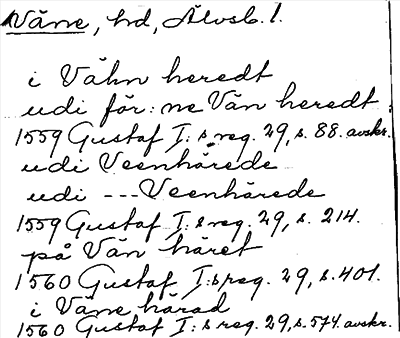 Väne, hd, Älvsb. l.
i Vähn heredt
udi för: ne Vän heredt
1559 Gustaf I:s reg. 29, s. 88. avskr.
udi Veenhärede
udi --- Veenhärede
1559 Gustaf I:s reg. 29, s. 214.
på Vän häret
1560 Gustaf I:s reg. 29, s. 401.
i Väne härad
1560 Gustaf I:s reg. 29, s. 574. avskr.